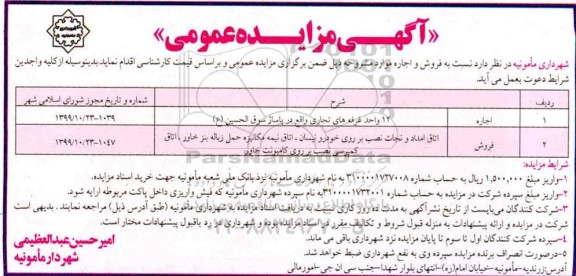 «آگهی مزایده عمومی»
شهرداری مأمونیه در نظر دارد نسبت به فروش و اجاره موارد مشروحه ذیل ضمن برگزاری مزایده عمومی و براساس قیمت کارشناسی اقدام نماید.بدینوسیله از کلیه واجدین
شرایط دعوت بعمل می آید.
ردیف شرح شماره و تاریخ مجوز شورای اسلامی شهر
۱ اجاره ۱۲ واحد غرفه های تجاری واقع در پاساژ سوق الحسین (ع) ۱۰۳۹-۱۳۹۹/۱۰/۲۳
۲ فروش اتاق امداد و نجات نصب بر روی خودرو نیسان ، اتاق نیمه مکانیزه حمل زباله بنز خاور ، اتاق
کمپرسی نصب بر روی کامیونت خاور ۱۰۴۷-۱۳۹۹/۱۰/۲۳
شرایط مزایده:
۱-واریز مبلغ ۱,۵۰۰,۰۰۰ ریال به حساب شماره به نام شهرداری مأمونیه نزد بانک ملی شعبه مأمونیه جهت خرید اسناد مزایده.
۲-واریز مبلغ سپرده شرکت در مزایده به حساب شماره به نام سپرده شهرداری مأمونیه که فیش واریزی داخل پاکت مربوطه ارایه شود.
۳-شرکت کنندگان می‌بایست از تاریخ نشر آگهی به مدت ده روز کاری نسبت به دریافت اسناد مزایده به شهرداری مأمونیه (طبق آدرس ذیل) مراجعه نمایند . بدیهی است
شرکت در مزایده و ارائه پیشنهادات به منزله قبول شروط و تکالیف مقرر در اسناد مزایده بوده و شهرداری در رد یا قبول پیشنهادات مختار است.
۴-سپرده شرکت کنندگان اول تا سوم تا پایان مزایده نزد شهرداری باقی می ماند.
۵-درصورت انصراف برنده مزایده سپرده وی به نفع شهرداری ضبط خواهد شد.
آدرس:زرندیه-مأمونیه-خیابان امام(ره)-انتهای بلوار شهدا-جنب سی ان جی-امورمالی
امیرحسین عبدالعظیمی
شهردار مأمونیه
ParsNamadData